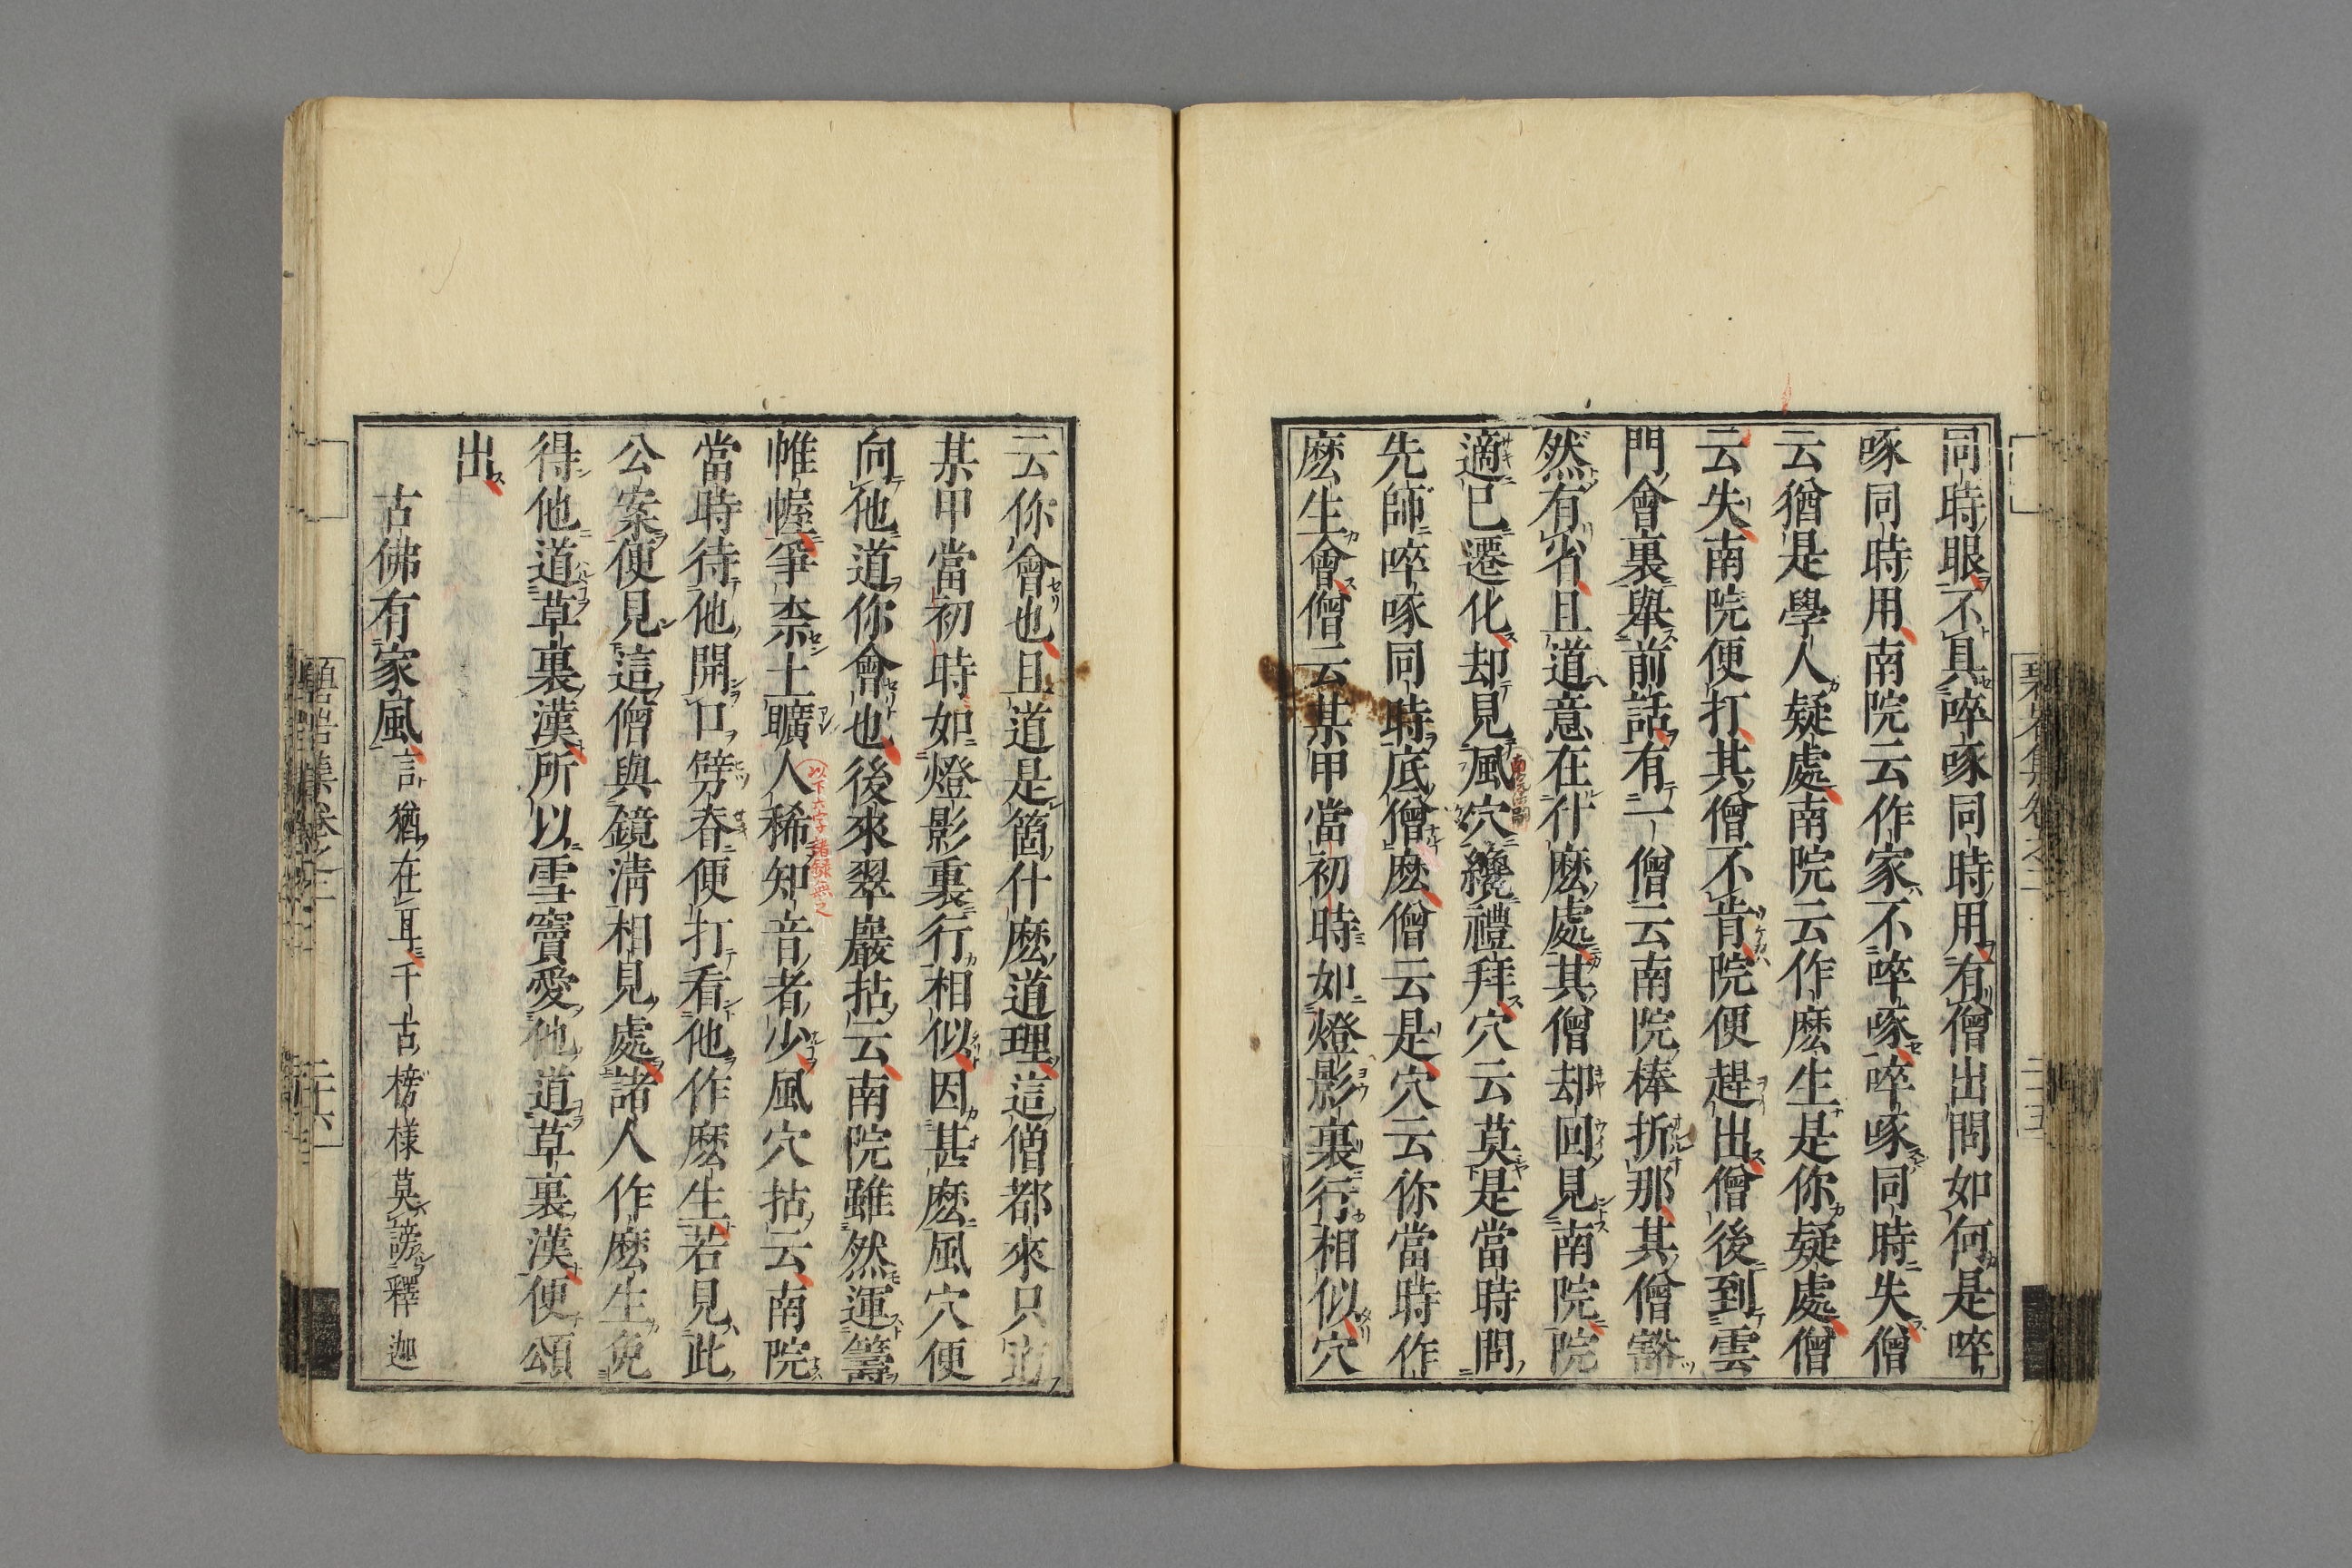 同時眼不具啐啄同時用有僧出問如何是啐
啄同時用南院云作家不啐啄啐啄同時失僧
云猶是學人疑處南院云作麽生是你疑處僧
云失南院便打其僧不肯院便趕出僧後到雲
門會裏舉前話有一僧云南院棒折那其僧豁
然有省且道意在什麽處其僧却回見南院院
適已遷化却見風穴纔禮拜穴云莫是當時問
先師啐啄同時底僧麽僧云是穴云你當時作
麽生會僧云某甲當初時如燈影裏行相似穴
云你會也且道是箇什麽道理這僧都來只道
某甲當初時如燈影裏行相似因甚麽風穴便
向他道你會也後來翠巖拈云南院雖然運籌
帷幄爭柰土曠人稀知音者少風穴拈云南院
以下六字諸録無之
當時待他開口劈脊便打看他作麽生若見此
公案便見這僧與鏡清相見處諸人作麽生免
得他道草裏漢所以雪竇愛他道草裏漢便頌
出
古佛有家風言猶在耳千古榜様莫謗釋迦
碧岩集卷之二
二十六